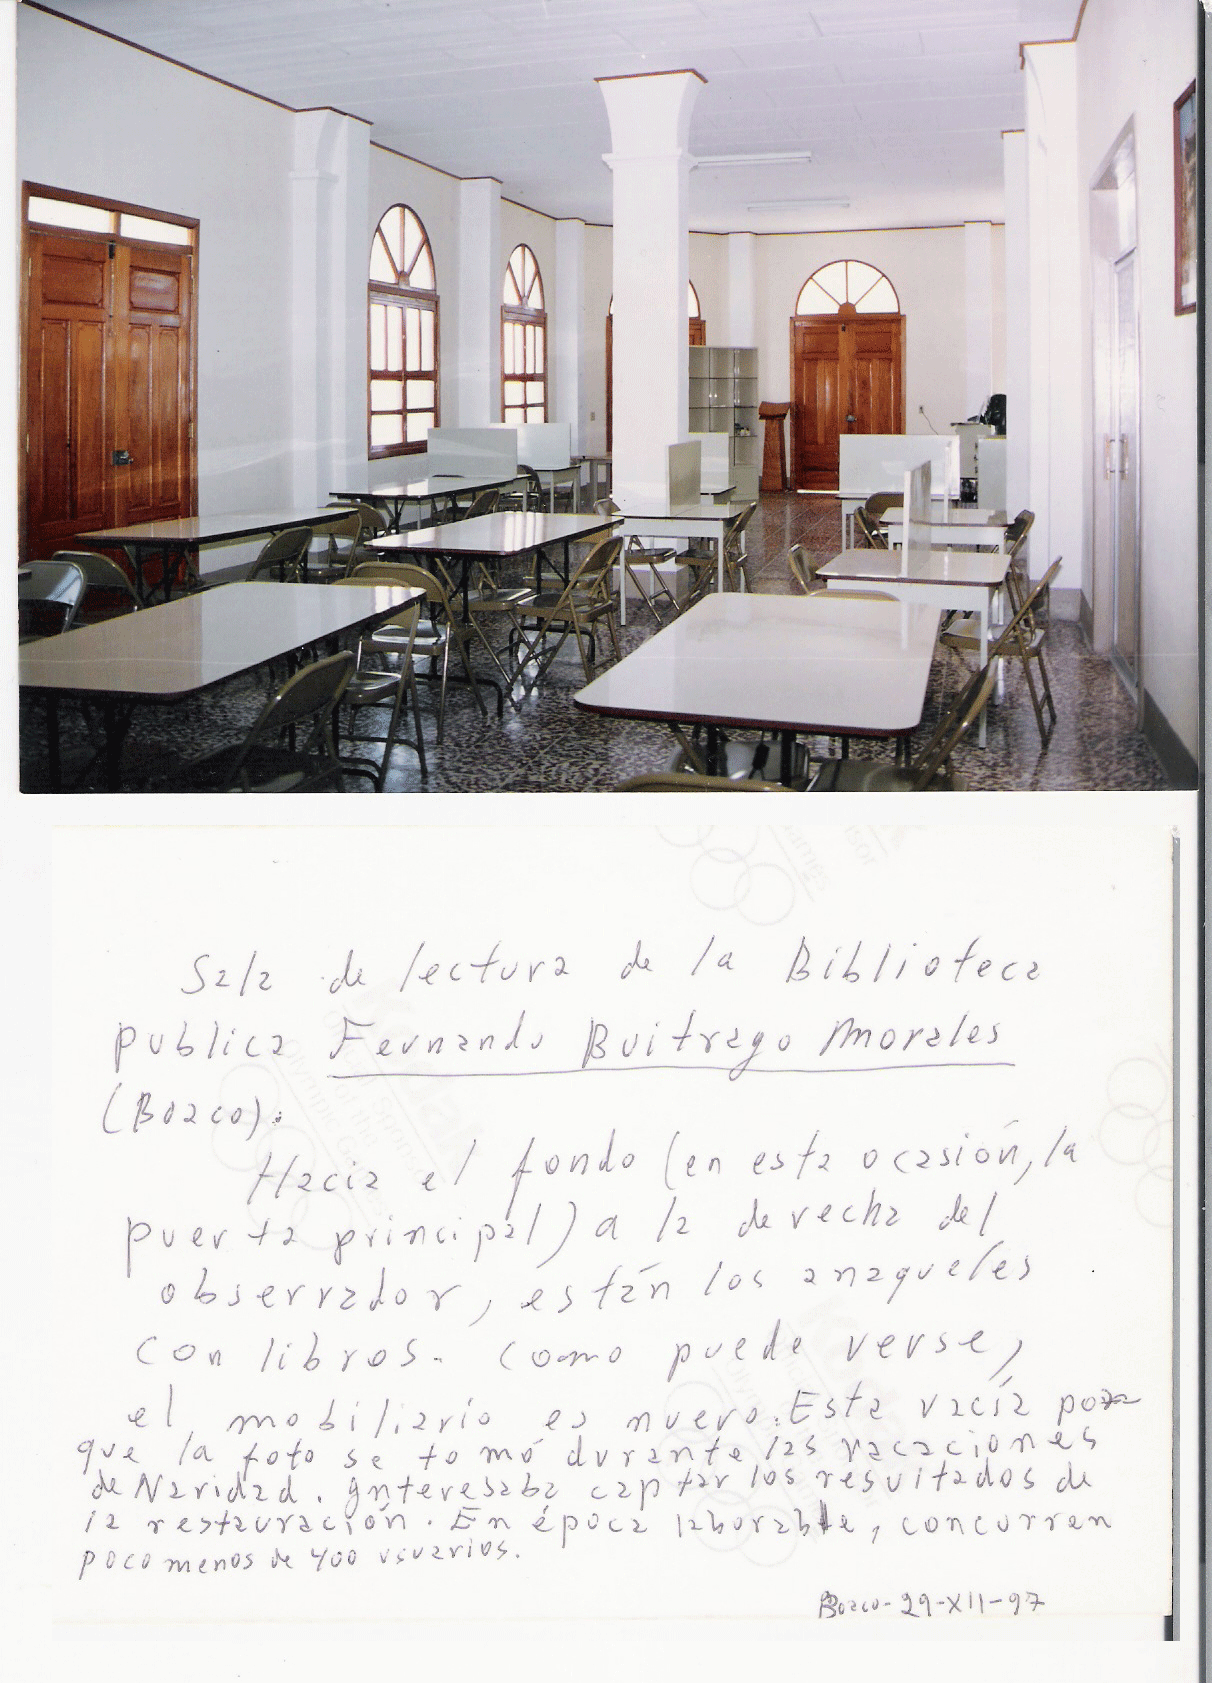 Sala de lectura de la Biblioteca
publica Fernando Buitrago Morales
(Boaco).
Hacia el fondo (en esta ocasión, la
puerta principal) a la derecha del
observador, están los anaqueles
con libros. Como puede verse,
el mobiliario es nuevo. Esta vacía por
que la foto se tomó durante las vacaciones
de Navidad. Interesaba captar los resultados de
la restauración. En época laborable, concurren
poco menos de 400 usuarios.
Boaco-29-XII-97